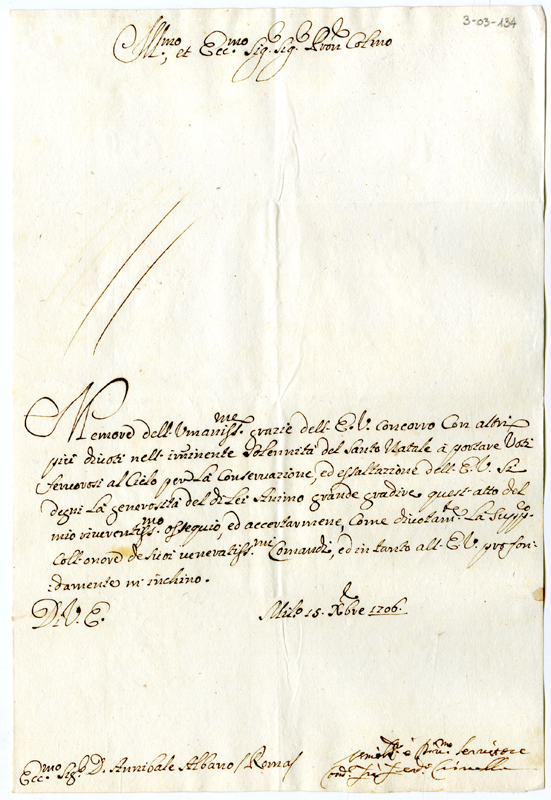 3-03-134
Ill.mo, et Ecc.mo Sig.r Sig.r Pron Colmo
Memore dell'Umaniss.me grazie dell'E.V. concorro con altri
più divoti nell'imminente Solennità del Santo Natale à portare Voti
fervorosi al Cielo per la Conservazione, ed essaltazione dell'E.V. Si
degni la generosità del di Lei Animo grande gradire quest'atto del
mio riverentiss.mo ossequio, ed accertarmene, Come divotam.te La Supp.co
Coll'onore de suoi veneratiss.mi Comandi, ed in tanto all'E.V. profon-
:damente m'inchino.
Di V. E.
Mil.o 15. Xbre 1706.
Ecc.mo Sig.r D. Annibale Albano / Roma /
Servitore